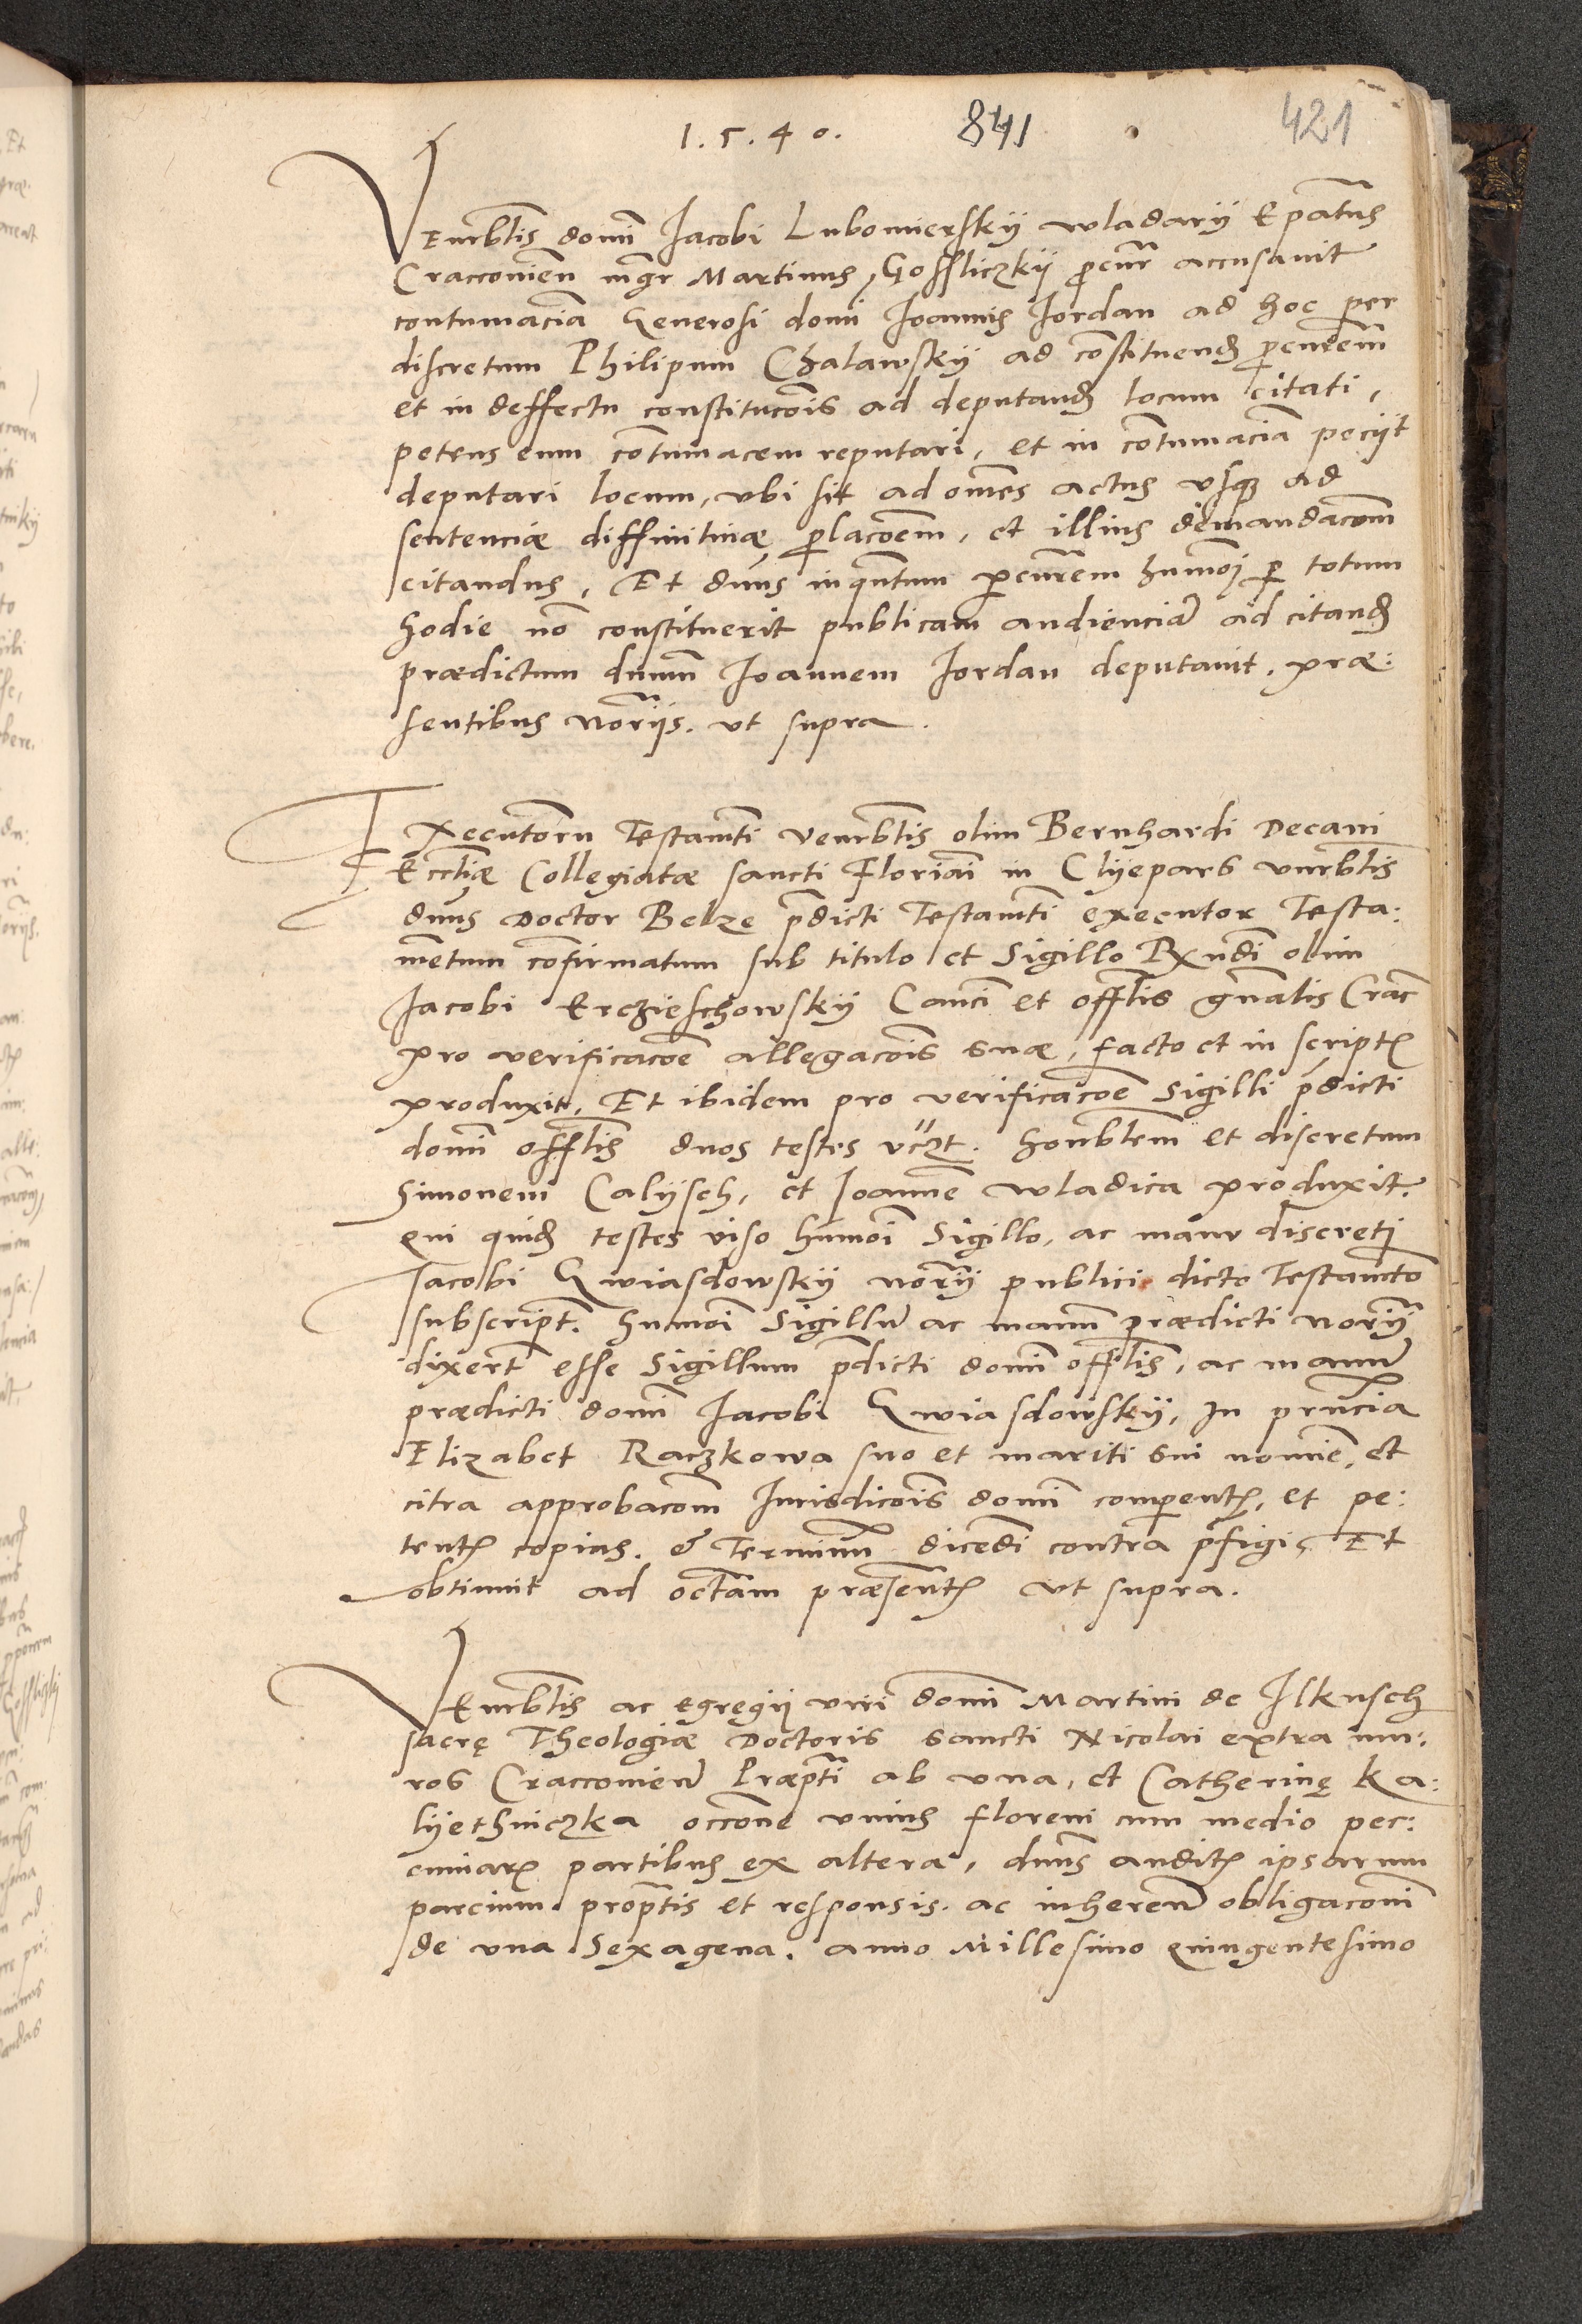 1.5.40. 841 421
Venrblis domi Jacobi Lubomierskÿ wladarÿ Epatus
Cracconien mgr Martinus Gossliczkÿ pcur accusavit
contumaciã Generosi domi Joannis Jordan ad hoc per
discretum Philipum Chalawskÿ ad constituend pcurem
et in deffectu constitucois ad deputand locum citati,
petens eum contumacem reputari, et in contumaciã peciit
deputari locum, vbi sit ad omes actus vsq ad
sentenciæ diffinitivæ placoem, et illius demandacom
citandus, Et dnus inqntum pcurem hmoi p totum
hodie no constituerit publicam audienciã ad citand
prædictum dnum Joannem Jordan deputavit. præ:
sentibus norÿs. vt supra.
Executoru Testamti venrblis olim Bernhardi Decani
Eccliæ Collegiatæ sancti Floriani in Clÿepars vnrblis
dnus Doctor Belze pdicti Testamti executor Testa:
mentum confirmatum sub titulo et Sigillo Rxndi olim
Jacobi Erczieschowskÿ Canci et offlis gnalis Crac
pro verificacoe allegacois suæ, facto et in script
produxit, Et ibidem pro verificacoe Sigilli pdicti
domi offlis duos testes vczt. honrblem et discretum
Simonem Calÿsch, et Joanne wladica produxit.
qui quid testes viso humoi Sigillo, ac manu discreti
Jacobi Gwiasdowskÿ norÿ publici dicto Testamto
subscript. humoi Sigillu ac manu prædicti norÿ
dixert esse Sigillum pdicti domi offlis, ac manu
prædicti domi Jacobi Gwiasdowskÿ, In pnciã
Elizabet Raczkowa suo et mariti sui nomie, et
citra approbacom Jurisdicois domi comparent, et pe:
tent copias. & Terminu dicedi contra pfigi, Et
obtinuit ad octam præsent vt supra.
Venrblis ac egregÿ viri domi Martini de Ilkusch
sacrę Theologiæ Doctoris sancti Nicolai extra mu:
ros Cracconien Præpti ab vna, et Catherinę Ka:
lÿethniczka occone vnius floreni cum medio pec:
cuniar partibus ex altera, dnus audit ipsarum
parcium proptis et responsis. ac inheren obligaconi
de vna Sexagena. anno Millesimo quingentesimo